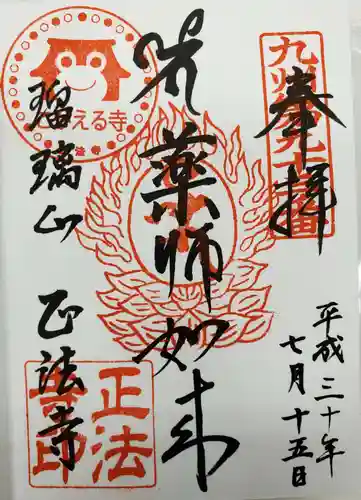 奉拝
平成三十年
七月十五日
薬師如来
瑠璃山
正法寺
かえる寺
正法
寺印